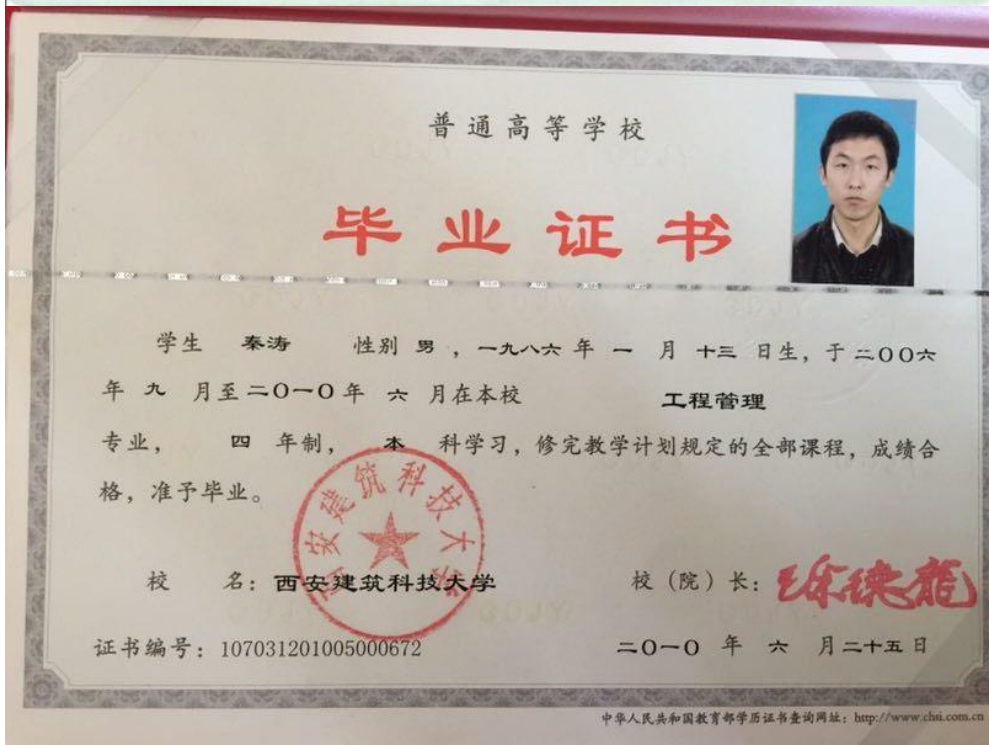 普通高等学校
毕业证书
学生 秦涛 性别 男，一九八六 年 一 月 十三 日生，于 二〇〇六
年 九 月至 二〇一〇 年 六 月在本校 工程管理
专业， 四 年制， 本 科学习，修完教学计划规定的全部课程，成绩合
格，准予毕业。
西安建筑科技大学
校 名：西安建筑科技大学 校（院）长：徐德龙
证书编号：107031201005000672 二〇一〇 年 六 月二十五日
中华人民共和国教育部学历证书查询网址：http://www.chsi.com.cn